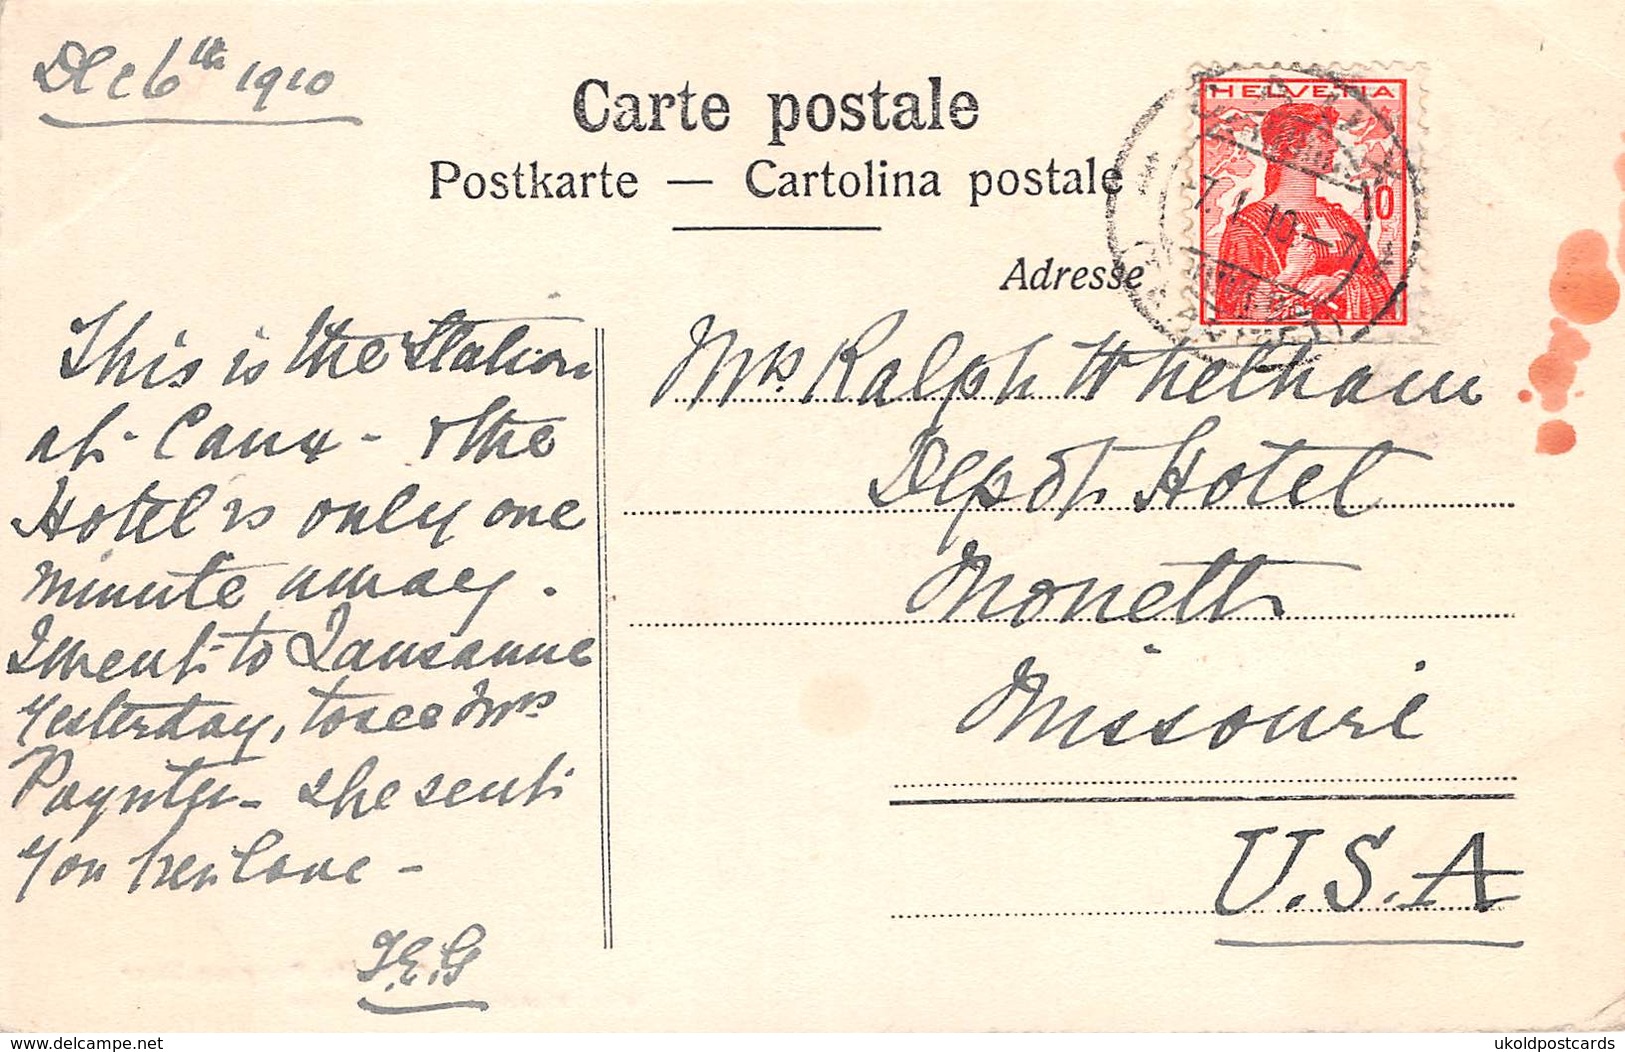 Dec 6th 1910
Carte postale
Postkarte — Cartolina postale
Adresse
HELVETIA
10
This is the Station
at Caux - & the
Hotel is only one
minute away.
I went to Lausanne
Yesterday, to see Mrs
Paynter - she sent
you her love -
Mrs Ralph Whelham
Depôt Hotel
Monett
Missouri
U.S.A
delcampe.net
ukoldpostcards